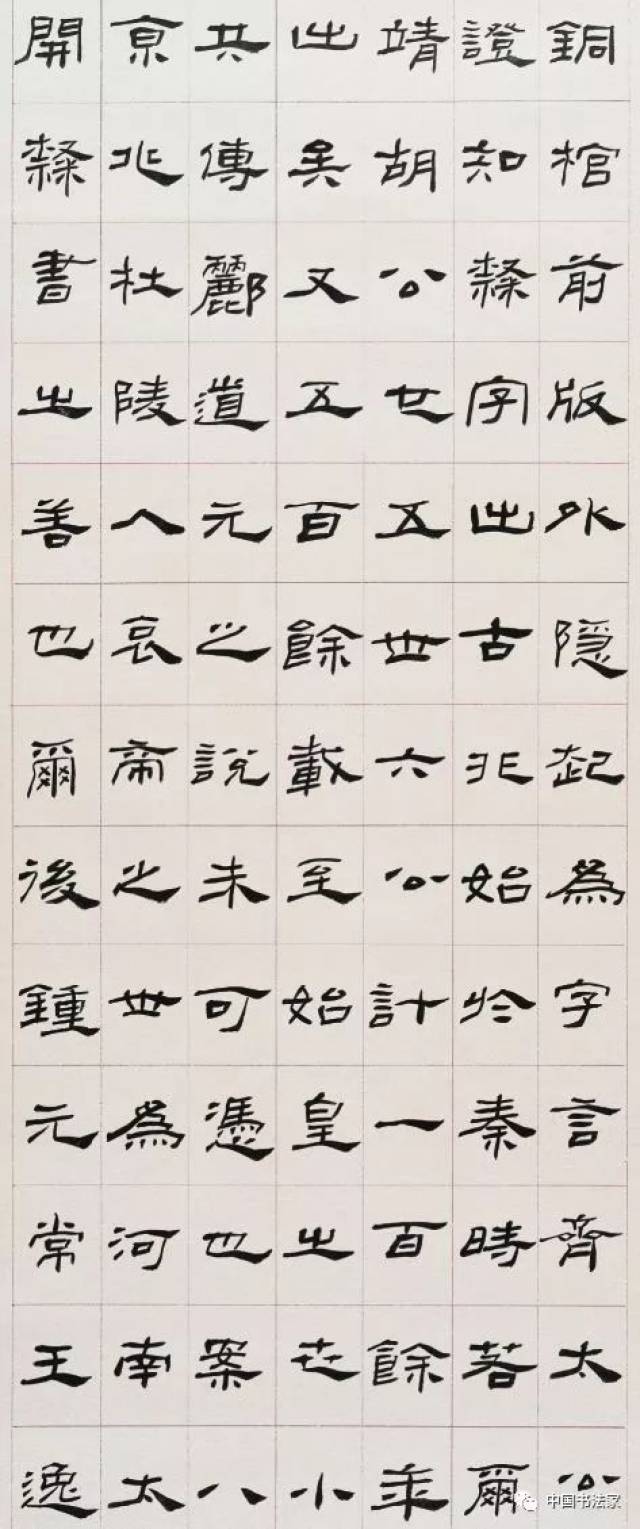 銅棺前版外隱起為字言齊太公
證知隸字出古非始於秦時若爾
靖胡公廿五世六公計一百餘年
出吳又五百餘載至始皇之世小
共傳酈道元之說未可憑也案八
京兆杜陵人哀帝之世為河南太
開隸書之善也爾後鍾元常王逸
中国书法家